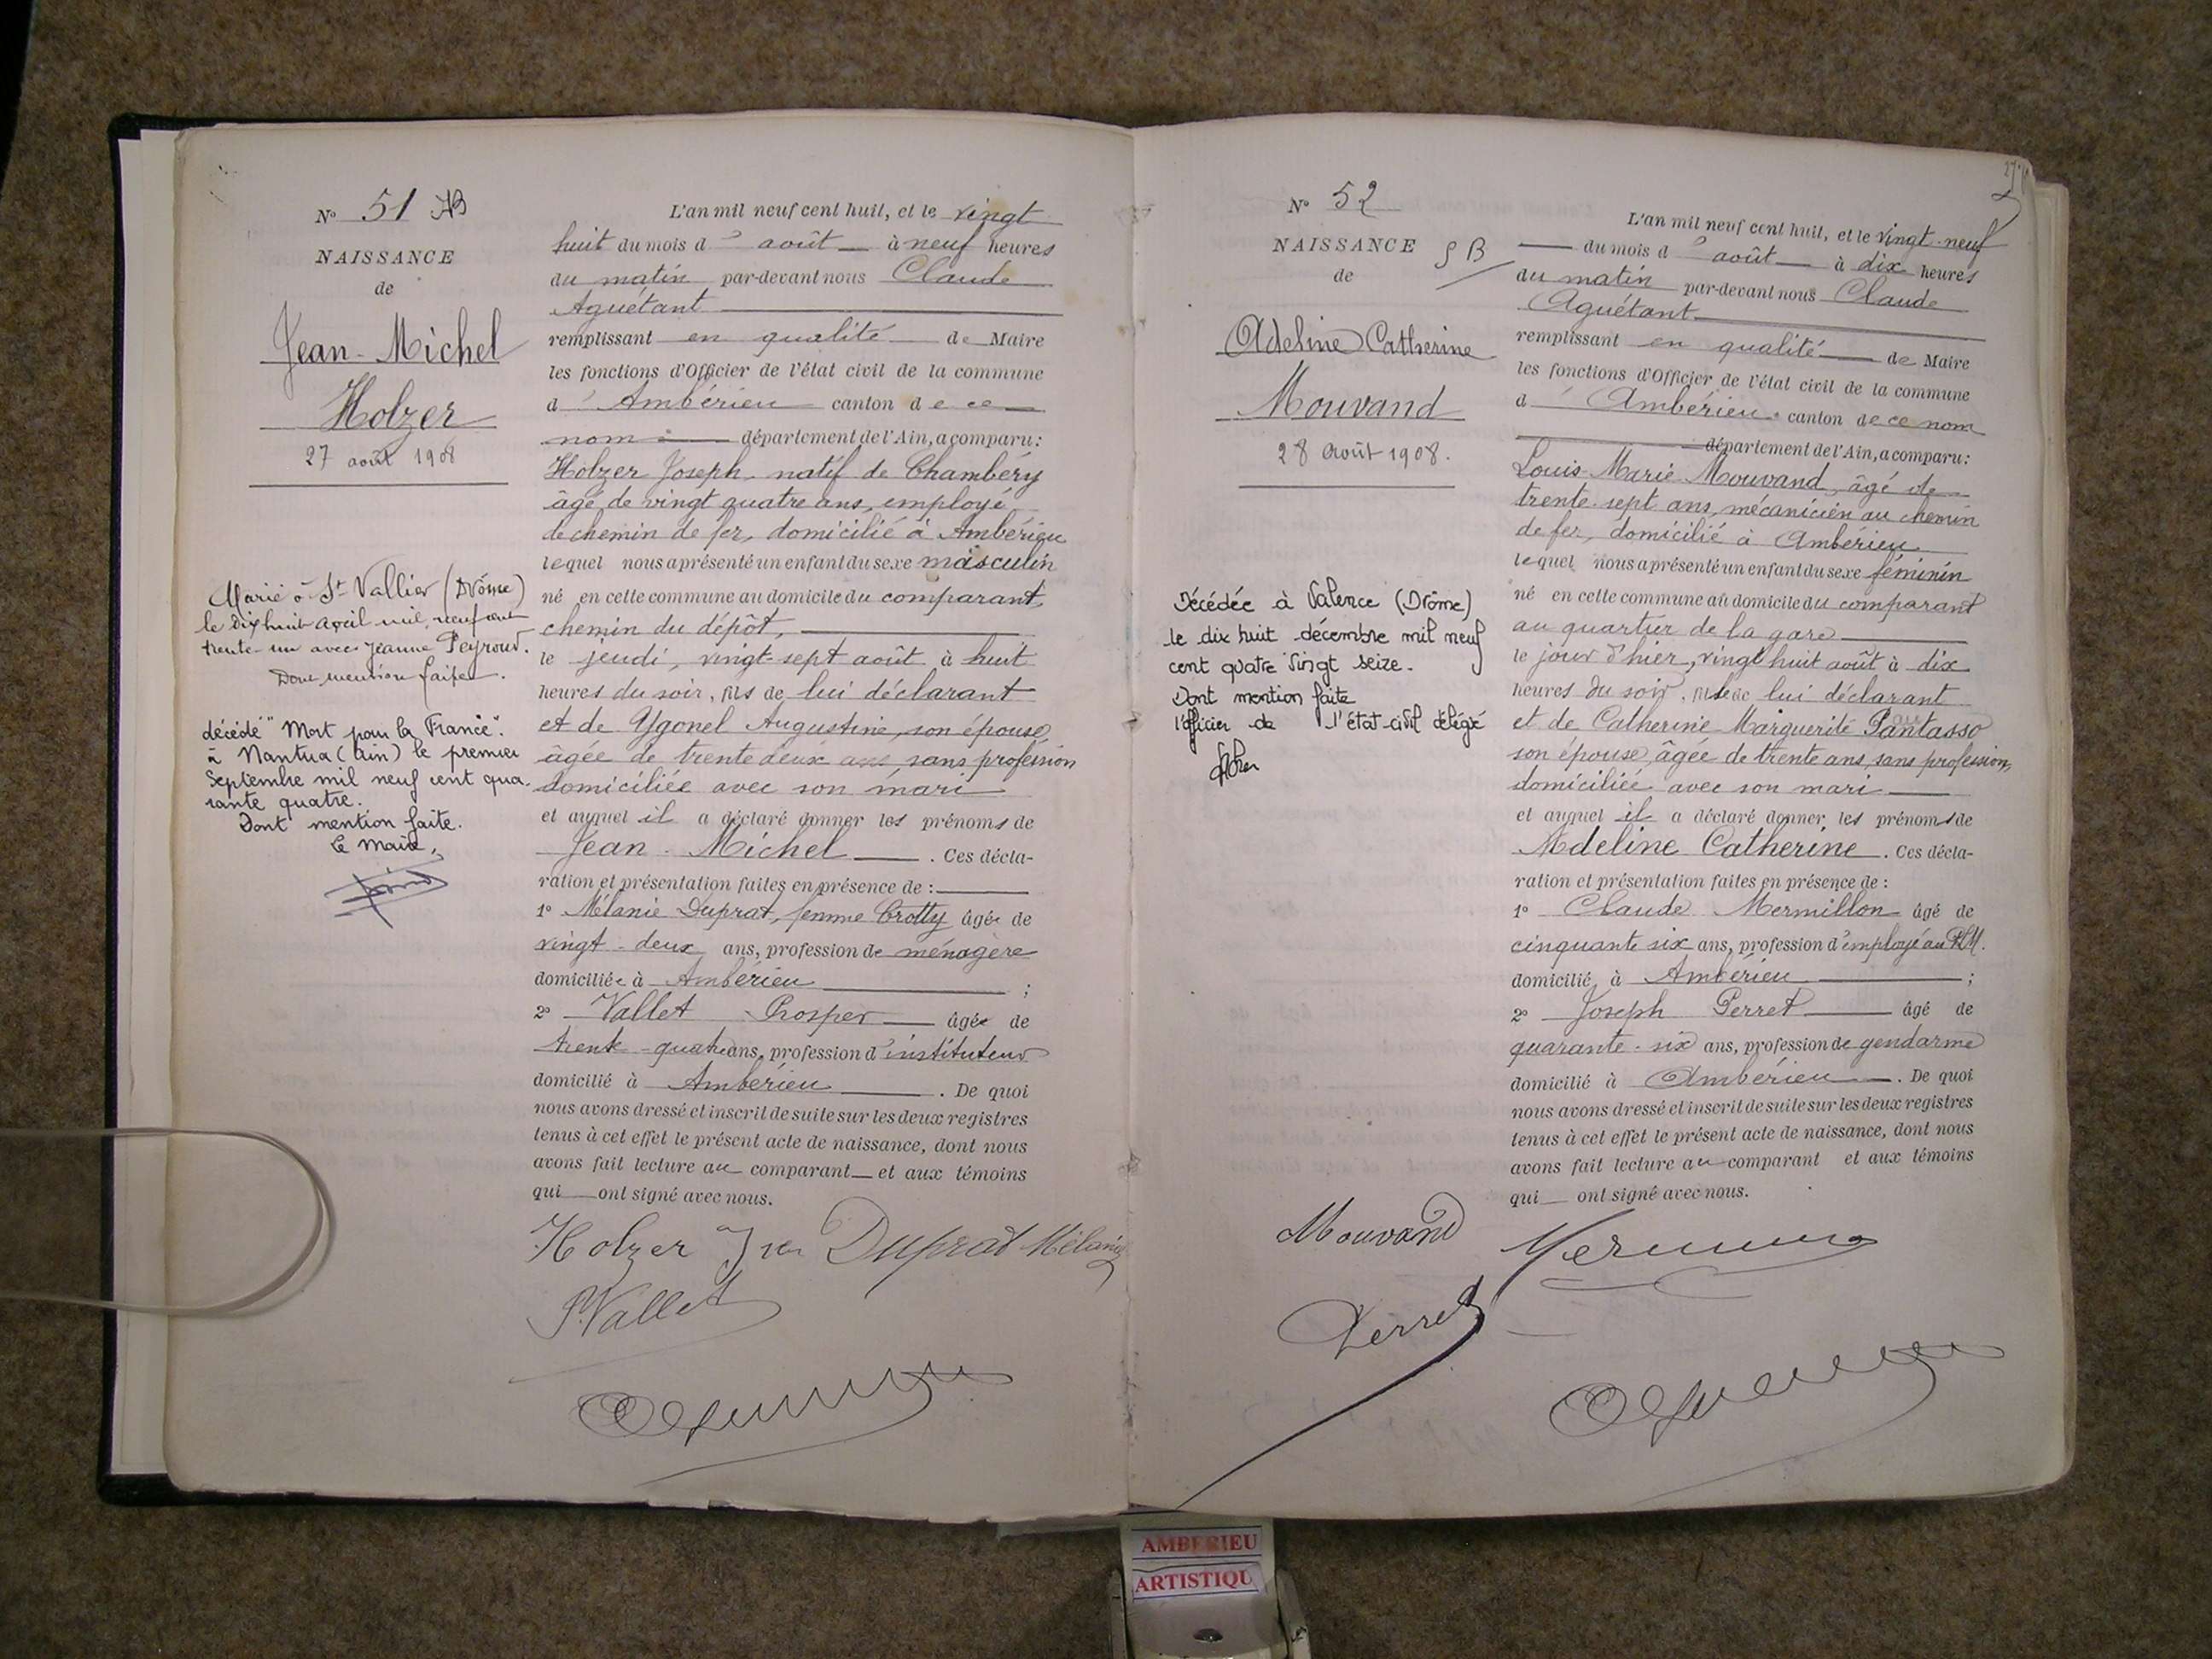 N° 51 AB
NAISSANCE
de
Jean-Michel
Holzer
27 août 1908
Marié à St Vallier (Drôme)
le dix huit avril mil neuf cent
trente-un avec Jeanne Peyroud.
Dont mention faite.
décédé "Mort pour la France".
à Nantua (Ain) le premier
Septembre mil neuf cent qua-
rante quatre.
Dont mention faite.
Le Maire,
L'an mil neuf cent huit, et le vingt
huit du mois d' août à neuf heures
du matin par-devant nous Claude
Aguétant
remplissant en qualité de Maire
les fonctions d'Officier de l'état civil de la commune
d' Ambérieu canton de ce
nom département de l'Ain, a comparu:
Holzer Joseph, natif de Chambéry
âgé de vingt quatre ans, employé
de chemin de fer, domicilié à Ambérieu
lequel nous a présenté un enfant du sexe masculin
né en cette commune au domicile du comparant,
chemin du dépôt,
le jeudi, vingt-sept août à huit
heures du soir, fils de lui déclarant
et de Ygonel Augustine, son épouse,
âgée de trente deux ans, sans profession
domiciliée avec son mari
et auquel il a déclaré donner les prénoms de
Jean-Michel. Ces décla-
ration et présentation faites en présence de :
1° Mélanie Duprat, femme Crotty âgée de
vingt-deux ans, profession de ménagère
domiciliée à Ambérieu ;
2° Vallet Prosper âgé de
trente-quatre ans, profession d'instituteur
domicilié à Ambérieu. De quoi
nous avons dressé et inscrit de suite sur les deux registres
tenus à cet effet le présent acte de naissance, dont nous
avons fait lecture au comparant et aux témoins
qui ont signé avec nous.
Holzer Duprat Mélanie
P. Vallet
N° 52
NAISSANCE
de
Adeline Catherine
Mouvand
28 Août 1908.
Décédée à Valence (Drôme)
le dix huit décembre mil neuf
cent quatre vingt seize.
Dont mention faite
l'officier de l'état-civil délégué
L'an mil neuf cent huit, et le vingt-neuf
du mois d' août à dix heures
du matin par-devant nous Claude
Aguétant
remplissant en qualité de Maire
les fonctions d'Officier de l'état civil de la commune
d' Ambérieu canton de ce nom
département de l'Ain, a comparu:
Louis-Marie Mouvand, âgé de
trente-sept ans, mécanicien au chemin
de fer, domicilié à Ambérieu
lequel nous a présenté un enfant du sexe féminin
né en cette commune au domicile du comparant
au quartier de la gare
le jour d'hier, vingt huit août à dix
heures du soir, fille de lui déclarant
et de Catherine Marguerite Pantasso
son épouse, âgée de trente ans, sans profession,
domiciliée avec son mari
et auquel il a déclaré donner les prénoms de
Adeline Catherine. Ces décla-
ration et présentation faites en présence de :
1° Claude Mermillon âgé de
cinquante six ans, profession d'employé au PLM.
domicilié à Ambérieu ;
2° Joseph Perret âgé de
quarante-six ans, profession de gendarme
domicilié à Ambérieu. De quoi
nous avons dressé et inscrit de suite sur les deux registres
tenus à cet effet le présent acte de naissance, dont nous
avons fait lecture au comparant et aux témoins
qui ont signé avec nous.
Mouvand
Perret
AMBERIEU
ARTISTIQU